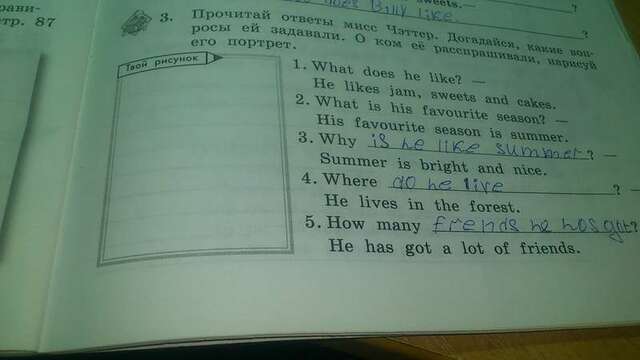 sweets.—
does Billy like. ?
рани-
тр. 87
?
3. Прочитай ответы мисс Чэттер. Догадайся, какие воп-
росы ей задавали. О ком её расспрашивали, нарисуй
его портрет.
Твой рисунок
1. What does he like? —
He likes jam, sweets and cakes.
2. What is his favourite season? —
His favourite season is summer.
3. Why is he like summer? —
Summer is bright and nice.
4. Where do he live ? —
He lives in the forest.
5. How many frends he has got?
He has got a lot of friends.